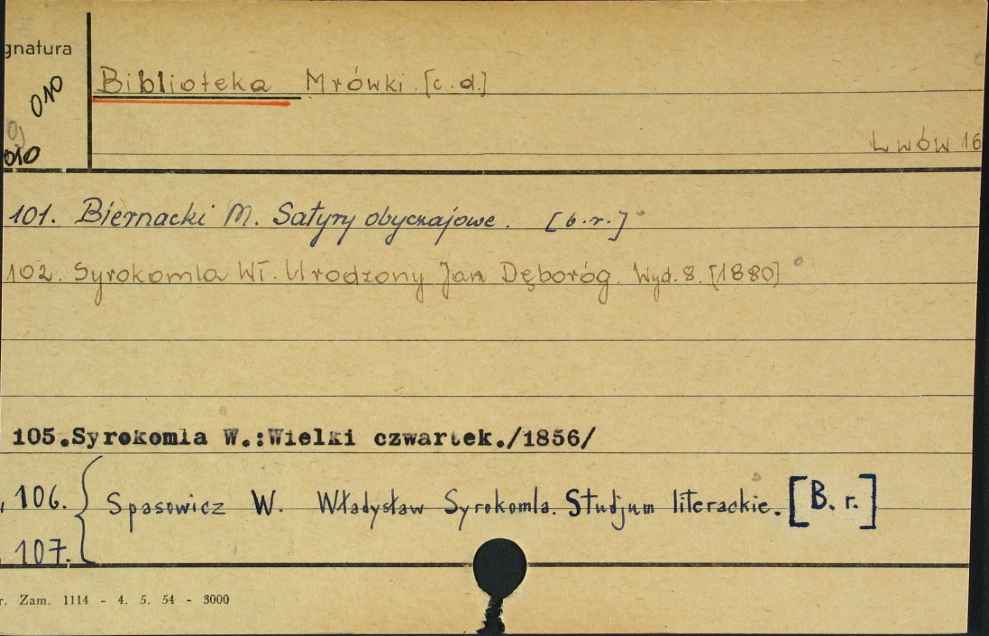 gnatura
010
Biblioteka Mrówki [c.d.]
010
Lwów 16
101. Biernacki M. Satyry obyczajowe. [b.r.]
102. Syrokomla Wł. Urodzony Jan Dęboróg. Wyd. 8. [1880]
105.Syrokomla W.:Wielki czwartek./1856/
106. Spasowicz W. Władysław Syrokomla. Studjum literackie. [B. r.]
107.
r. Zam. 1114 - 4. 5. 54 - 3000